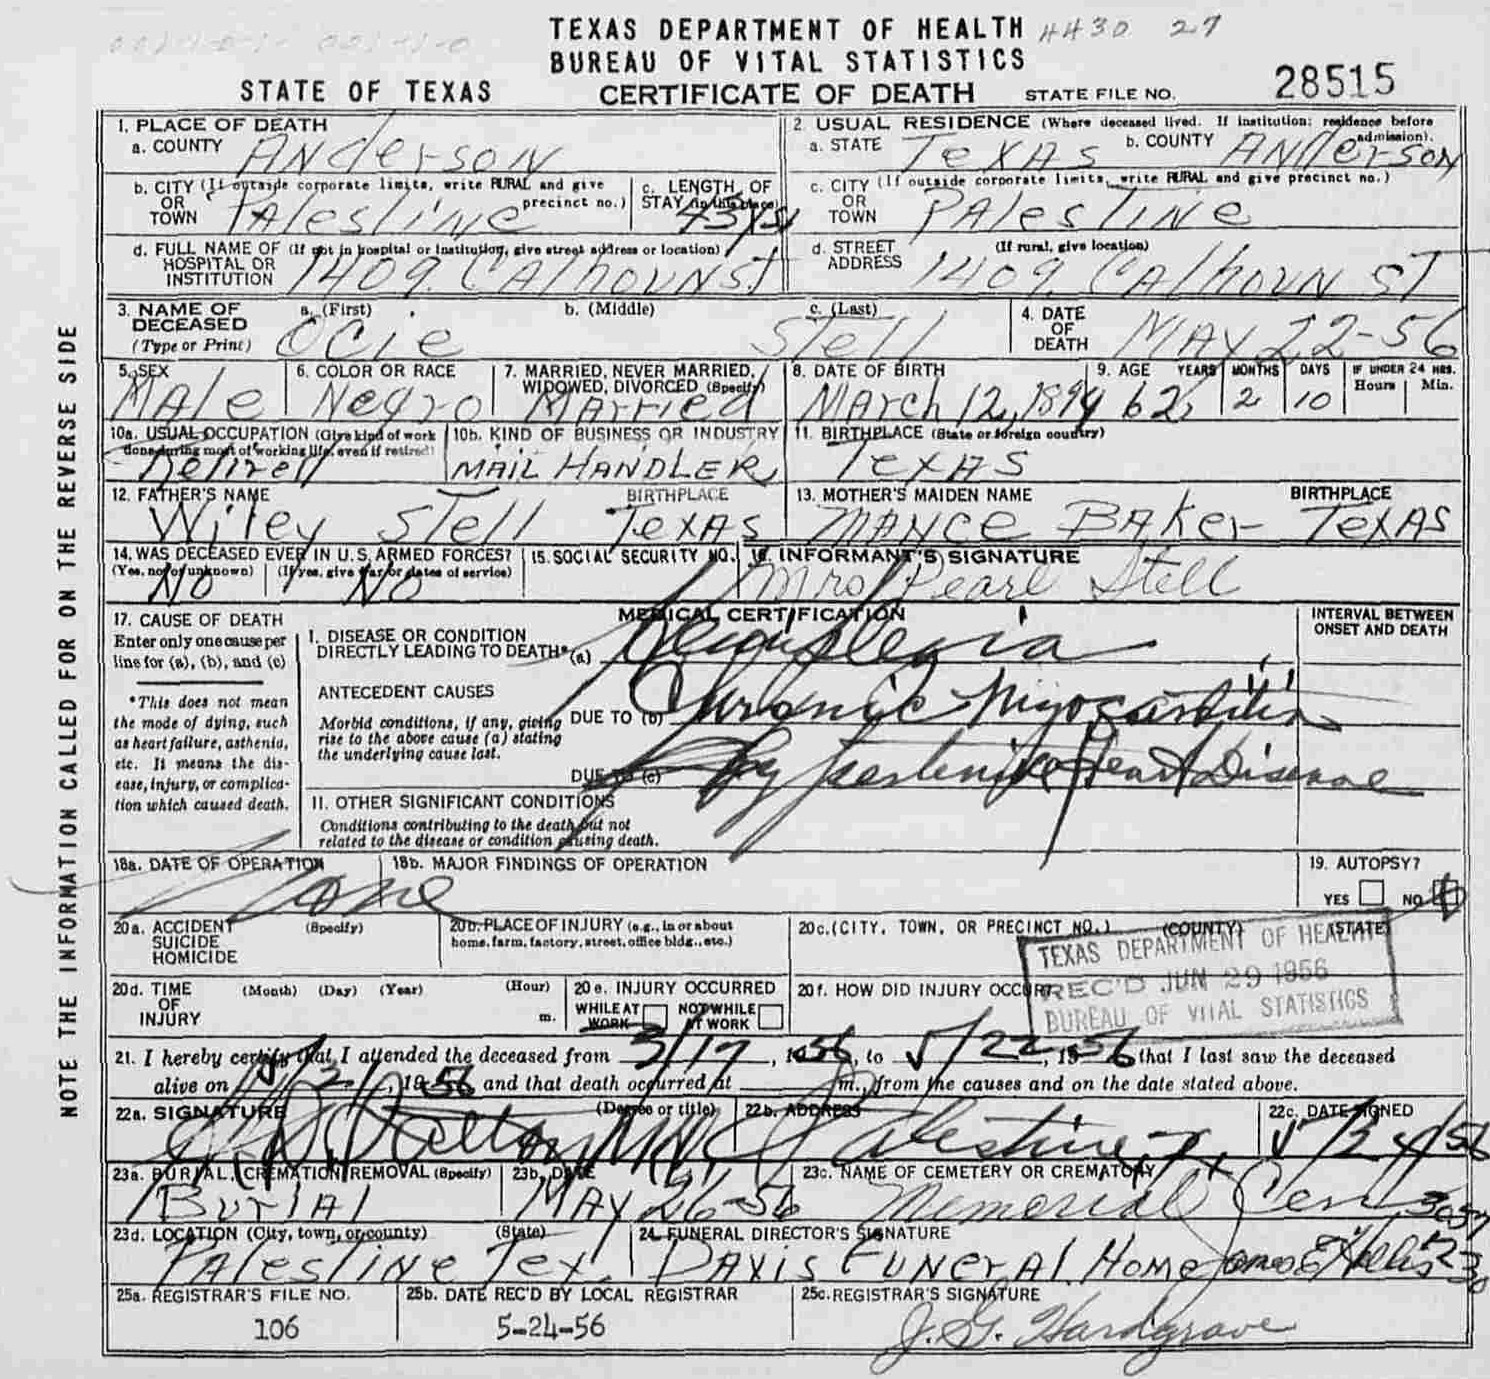 TEXAS DEPARTMENT OF HEALTH 4430 27
BUREAU OF VITAL STATISTICS
STATE OF TEXAS CERTIFICATE OF DEATH STATE FILE NO. 28515
NOTE THE INFORMATION CALLED FOR ON THE REVERSE SIDE
1. PLACE OF DEATH
a. COUNTY Anderson
2. USUAL RESIDENCE (Where deceased lived. If institution: residence before admission).
a. STATE Texas b. COUNTY Anderson
b. CITY (If outside corporate limits, write RURAL and give precinct no.)
OR
TOWN Palestine
c. LENGTH OF STAY (in this place) 43 yrs
c. CITY (If outside corporate limits, write RURAL and give precinct no.)
OR
TOWN Palestine
d. FULL NAME OF (If not in hospital or institution, give street address or location)
HOSPITAL OR
INSTITUTION 1409 Calhoun St
d. STREET (If rural, give location)
ADDRESS 1409 Calhoun St
3. NAME OF DECEASED (Type or Print)
a. (First) Ocie b. (Middle) c. (Last) Stell
4. DATE OF DEATH May 22-56
5. SEX Male
6. COLOR OR RACE Negro
7. MARRIED, NEVER MARRIED, WIDOWED, DIVORCED (Specify) Married
8. DATE OF BIRTH March 12, 1894
9. AGE YEARS 62 MONTHS 2 DAYS 10 IF UNDER 24 HRS. Hours Min.
10a. USUAL OCCUPATION (Give kind of work done during most of working life, even if retired)
10b. KIND OF BUSINESS OR INDUSTRY MAIL HANDLER
11. BIRTHPLACE (State or foreign country) Texas
12. FATHER'S NAME Wiley Stell BIRTHPLACE Texas
13. MOTHER'S MAIDEN NAME Mance Baker BIRTHPLACE Texas
14. WAS DECEASED EVER IN U.S. ARMED FORCES?
(Yes, no, or unknown) No (If yes, give war or dates of service) No
15. SOCIAL SECURITY NO.
16. INFORMANT'S SIGNATURE Mrs Pearl Stell
17. CAUSE OF DEATH
Enter only one cause per line for (a), (b), and (c)
*This does not mean the mode of dying, such as heart failure, asthenia, etc. It means the disease, injury, or complication which caused death.
MEDICAL CERTIFICATION
INTERVAL BETWEEN ONSET AND DEATH
I. DISEASE OR CONDITION DIRECTLY LEADING TO DEATH* (a) Hemiplegia
ANTECEDENT CAUSES
Morbid conditions, if any, giving rise to the above cause (a) stating the underlying cause last.
DUE TO (b) Chronic Myocarditis
DUE TO (c) Hypertensive Heart Disease
II. OTHER SIGNIFICANT CONDITIONS
Conditions contributing to the death but not related to the disease or condition causing death.
18a. DATE OF OPERATION None
18b. MAJOR FINDINGS OF OPERATION
19. AUTOPSY?
YES NO
20a. ACCIDENT (Specify)
SUICIDE
HOMICIDE
20b. PLACE OF INJURY (e.g., in or about home, farm, factory, street, office bldg., etc.)
20c. (CITY, TOWN, OR PRECINCT NO.) (COUNTY) (STATE)
20d. TIME OF INJURY (Month) (Day) (Year) (Hour) m.
20e. INJURY OCCURRED
WHILE AT WORK NOT WHILE AT WORK
20f. HOW DID INJURY OCCUR?
TEXAS DEPARTMENT OF HEALTH
REC'D JUN 29 1956
BUREAU OF VITAL STATISTICS
21. I hereby certify that I attended the deceased from 3/17, 1956, to 5/22, 1956 that I last saw the deceased
alive on 5/21, 1956 and that death occurred at m., from the causes and on the date stated above.
22a. SIGNATURE (Degree or title) Dalton MD
22b. ADDRESS Palestine Tx
22c. DATE SIGNED 5/24/56
23a. BURIAL, CREMATION, REMOVAL (Specify) Burial
23b. DATE May 26-56
23c. NAME OF CEMETERY OR CREMATORY Memorial Cem
23d. LOCATION (City, town, or county) (State) Palestine Tex.
24. FUNERAL DIRECTOR'S SIGNATURE Davis Funeral Home
25a. REGISTRAR'S FILE NO. 106
25b. DATE REC'D BY LOCAL REGISTRAR 5-24-56
25c. REGISTRAR'S SIGNATURE J. G. Hardgrave